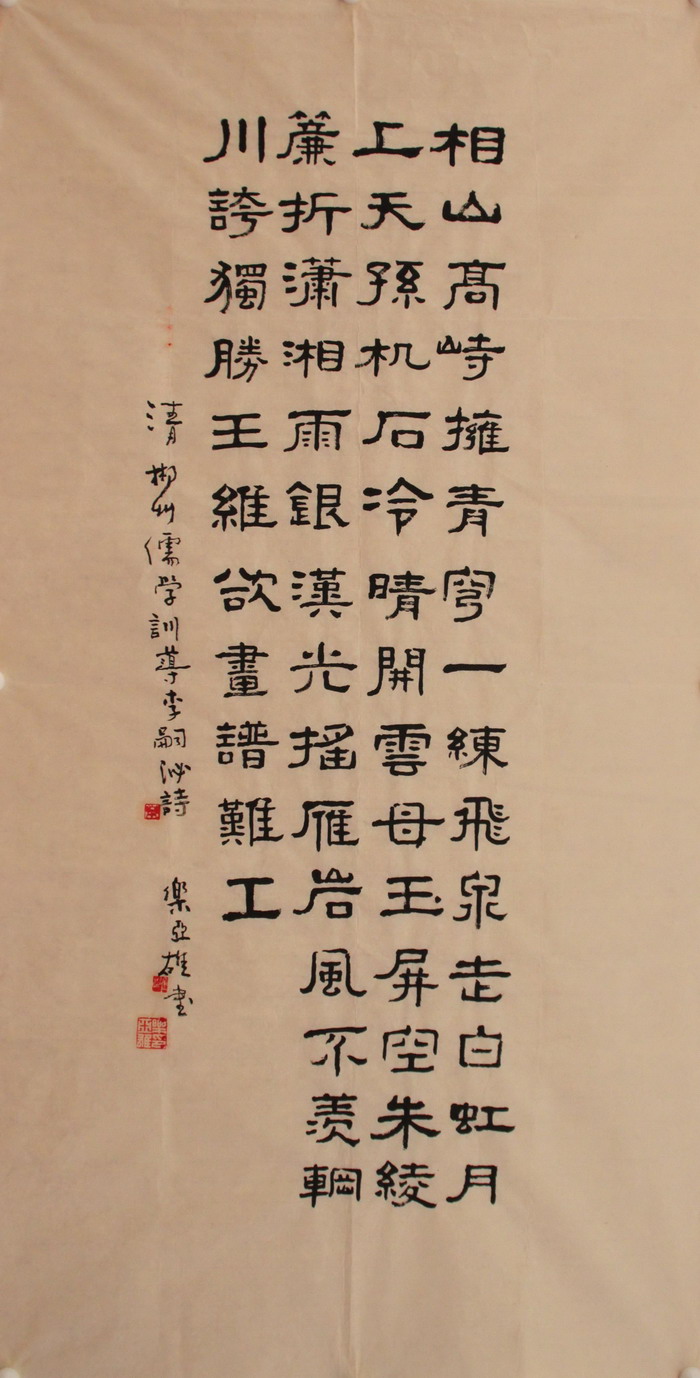 相山髙峙擁青穹一練飛泉走白虹月
上天孫机石冷晴開雲母玉屏空朱綾
簾折瀟湘雨銀漢光搖雁岩風不羨輞
川誇獨勝王維欲畫譜難工
清郴州儒学訓導李嗣泌詩
樂亞雄書